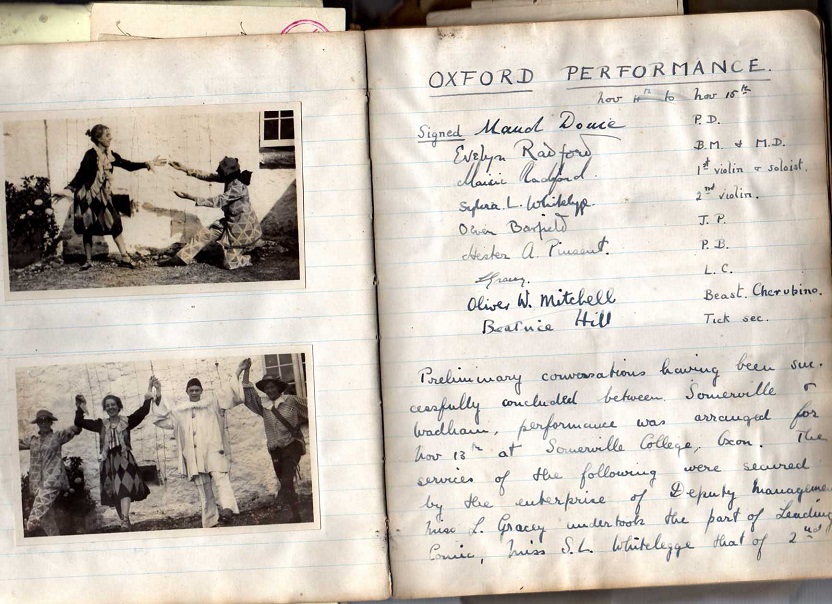 OXFORD PERFORMANCE.
Nov 11th to Nov 15th
Signed Maud Douie P.D.
Evelyn Radford B.M. & M.D.
Maisie Radford 1st violin & soloist.
Sylvia L. Whitelegge. 2nd violin.
Owen Barfield J.P.
Hester A. Pinsent. P.B.
Gracey. L.C.
Oliver W. Mitchell Beast. Cherubino.
Beatrice Hill Tick sec.
Preliminary conversations having been suc-
cessfully concluded between Somerville &
Wadham, performance was arranged for
Nov 13th at Somerville College, Oxon. The
services of the following were secured
by the enterprise of Deputy Manageme
Miss L. Gracey undertook the part of Leading
Comic, Miss S.L. Whitelegge that of 2nd